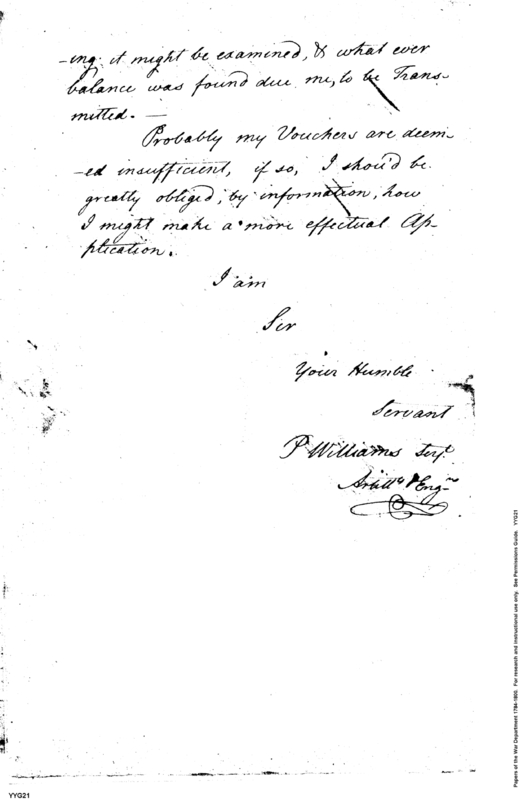 -ing it might be examined, & what ever
balance was found due me, to be Trans-
mitted. —
Probably my Vouchers are deem-
-ed insufficient, if so, I shou'd be
greatly obliged, by information, how
I might make a more effectual Ap-
plication.
I am
Sir
Your Humble
Servant
P Williams
Artill & Eng
YYG21
Papers of the War Department 1784-1800. For research and instructional use only. See Permissions Guide. YYG21